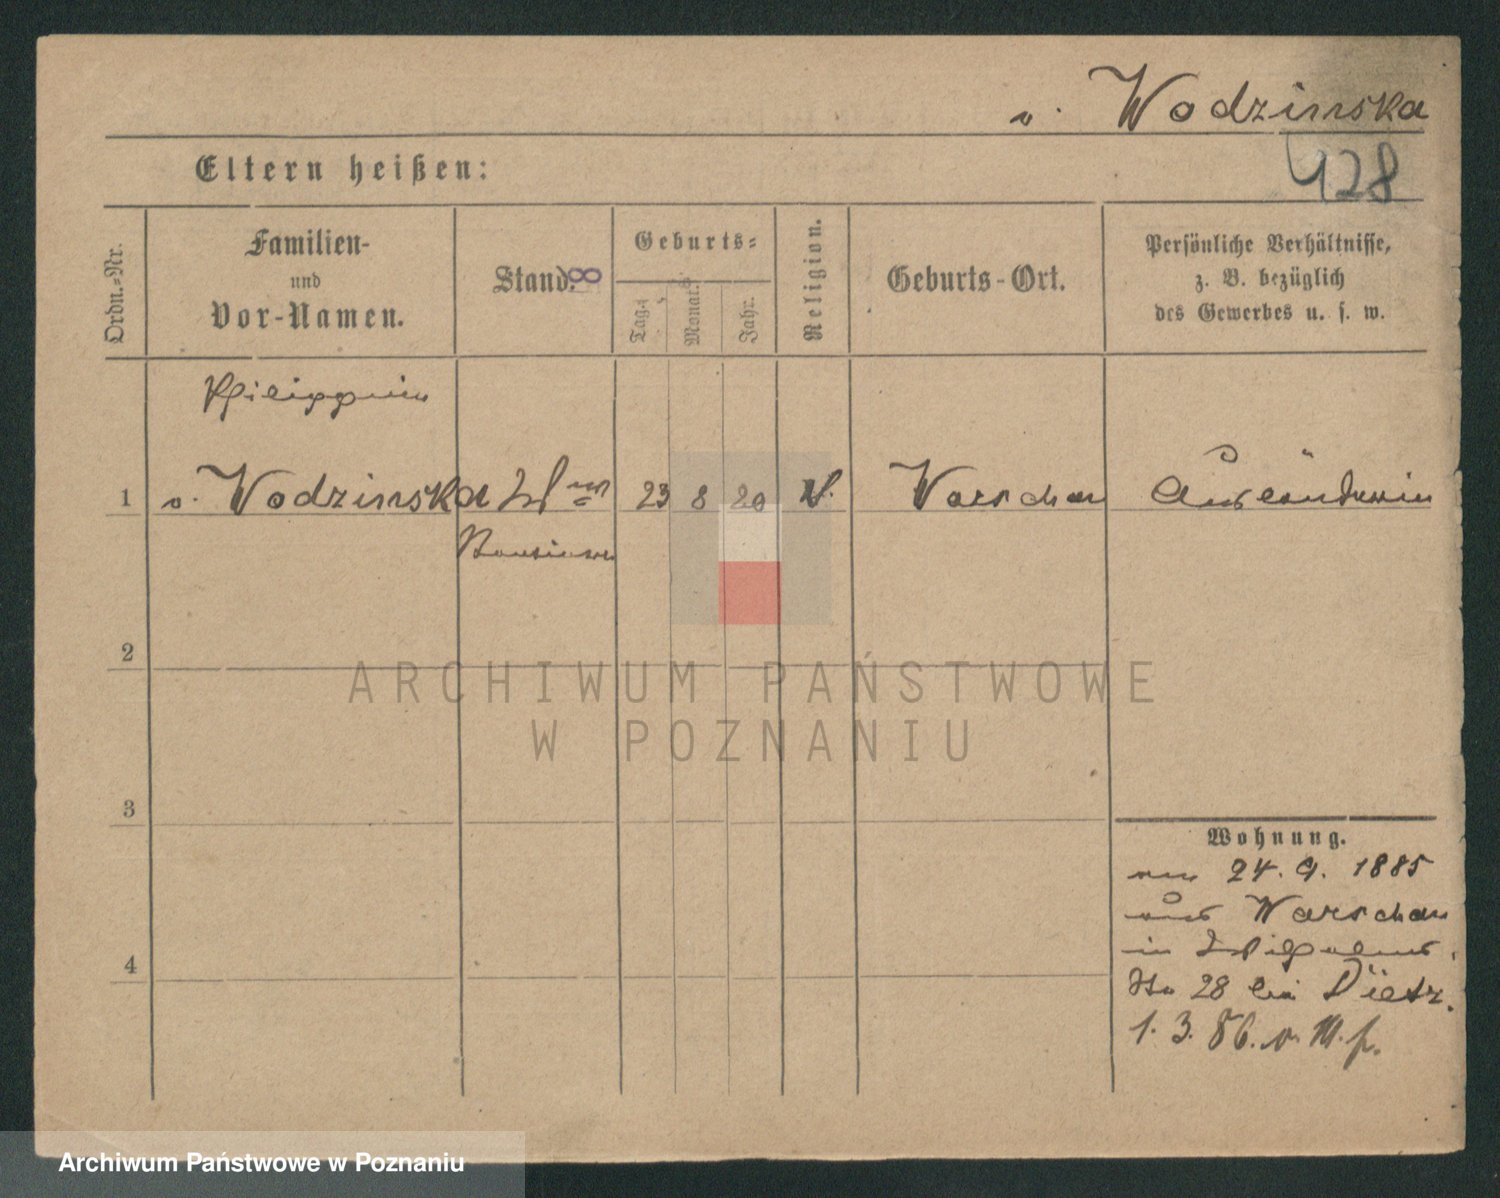 v. Wodzinska
428
Eltern heißen:
Ordn.-Nr.
Familien-
und
Vor-Namen.
Stand.
8
Geburts-
Tag.
Monat.
Jahr.
Religion.
Geburts-Ort.
Persönliche Verhältnisse,
z. B. bezüglich
des Gewerbes u. s. w.
Philippine
1 v. Wodzinska Wwe 23 8 20 Warschau Ausländerin
2
3
4
Wohnung.
am 24. 9. 1885
aus Warschau
in
No 28 bei Dietz.
1. 3. 86. v.
ARCHIWUM PAŃSTWOWE
W POZNANIU
Archiwum Państwowe w Poznaniu